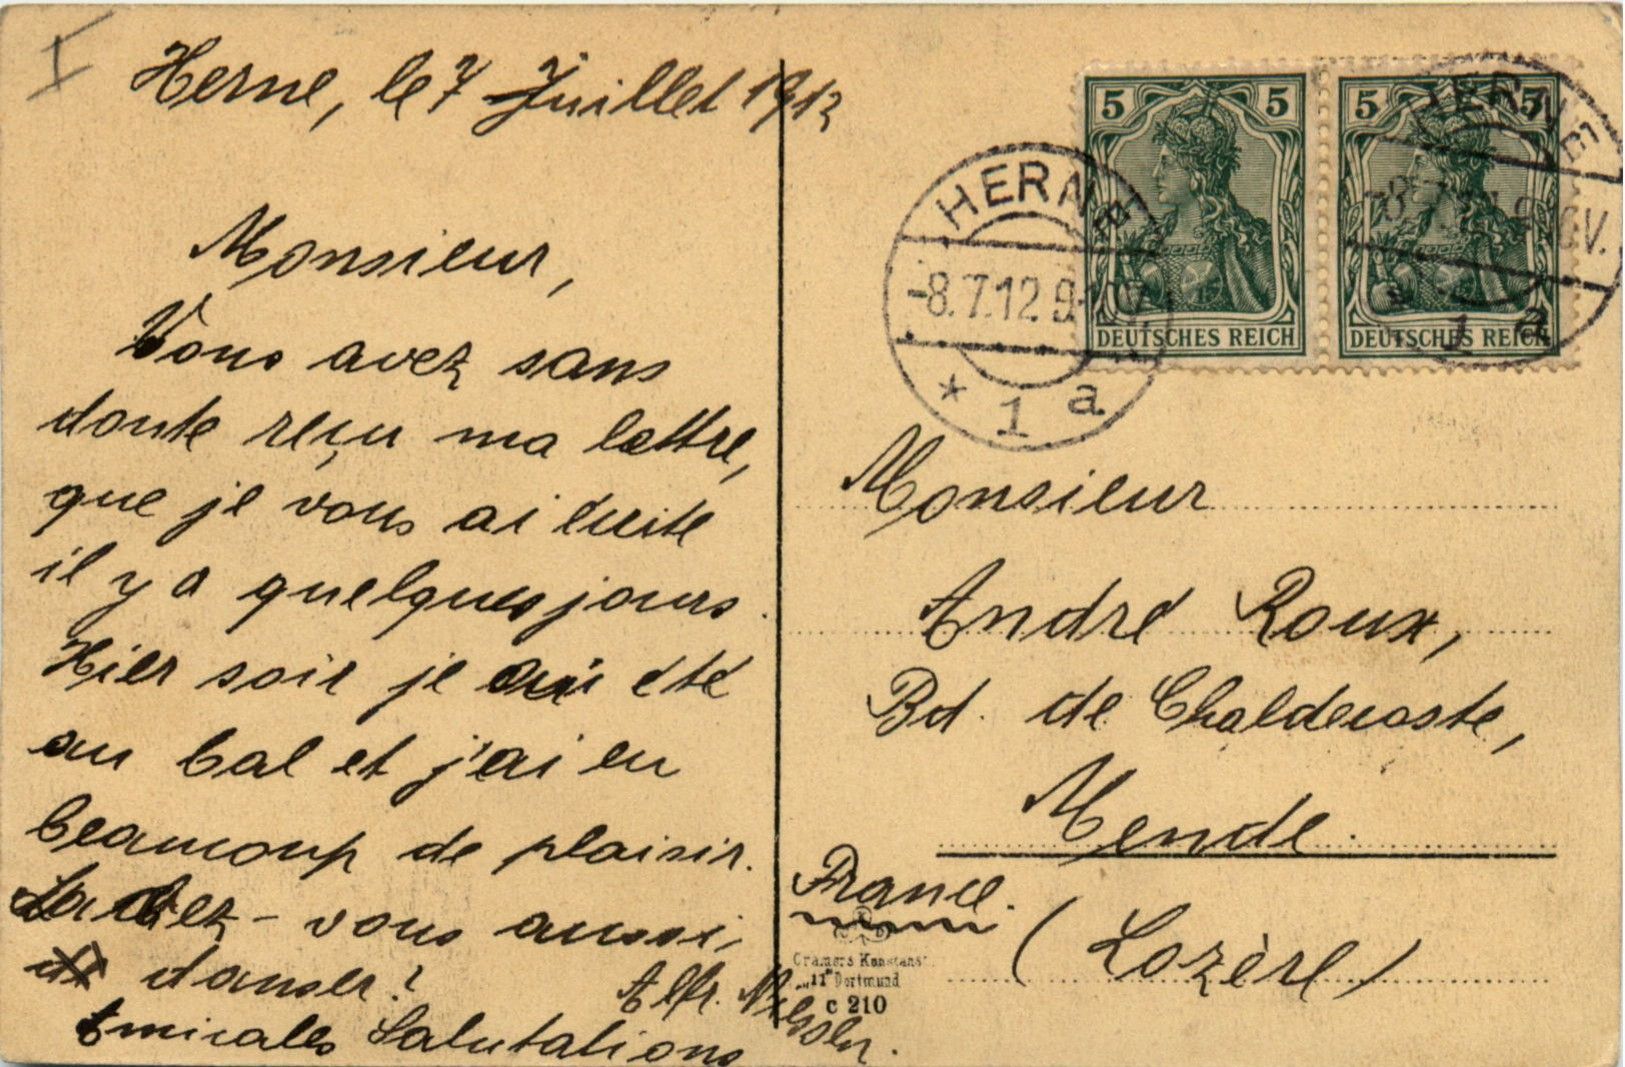 I
Herne, le 7 Juillet 1912
Monsieur,
Vous avez sans
doute reçu ma lettre,
que je vous ai écrite
il y a quelques jours.
Hier soir je ai été
au bal et j'ai eu
beaucoup de plaisir.
-vous aussi,
danser?
Amicales Salutations
Alfr.
5 5
DEUTSCHES REICH
5 5
DEUTSCHES REICH
HERNE
-8.7.12.9-10V.
* 1 a
HERNE
-8.7.12.9-10V.
* 1 a
Monsieur
André Roux,
Bd. de Chaldecoste,
Mende
France.
(Lozère)
Cramers Kunstanst.
Dortmund
c 210